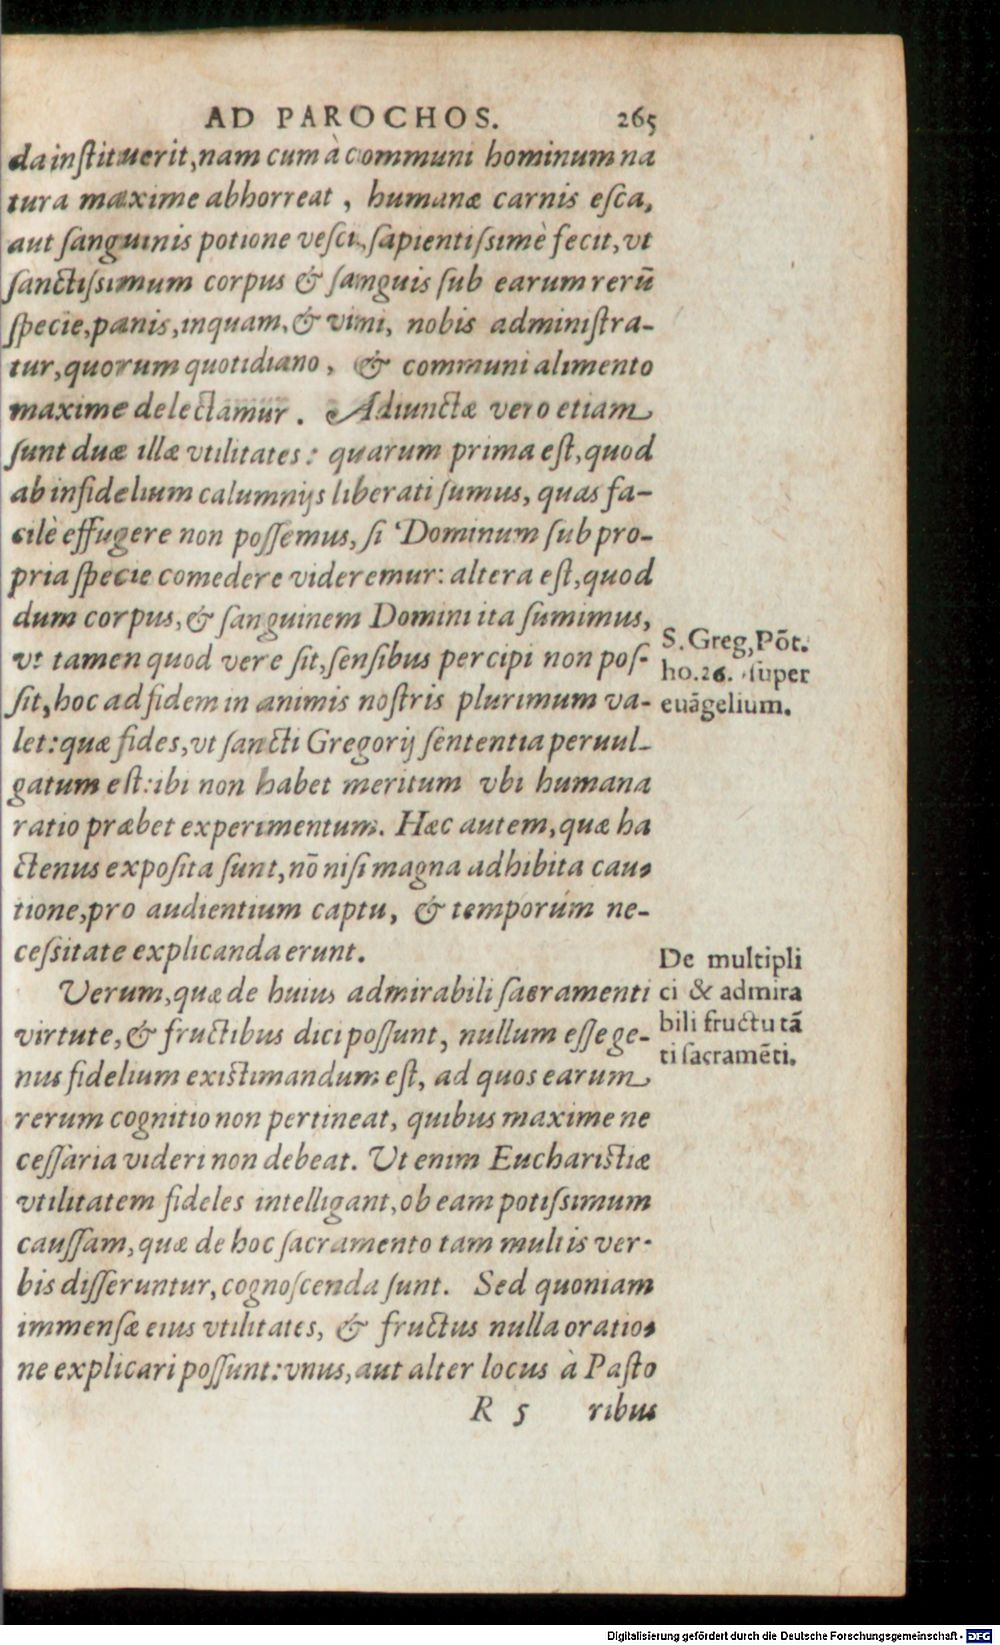 AD PAROCHOS. 265
da inſtituerit, nam cum à communi hominum na
tura maxime abhorreat, humanæ carnis eſca,
aut ſanguinis potione veſci, ſapientiſsimè fecit, vt
ſanctiſsimum corpus & ſanguis ſub earum rerũ
ſpecie, panis, inquam, & vini, nobis adminiſtra-
tur, quorum quotidiano, & communi alimento
maxime delectamur. Adiunctæ vero etiam
ſunt duæ illæ vtilitates: quarum prima eſt, quod
ab infidelium calumnijs liberati ſumus, quas fa-
cilè effugere non poſſemus, ſi Dominum ſub pro-
pria ſpecie comedere videremur: altera eſt, quod
dum corpus, & ſanguinem Domini ita ſumimus,
vt tamen quod vere ſit, ſenſibus percipi non poſ-
ſit, hoc ad fidem in animis noſtris plurimum va-
let: quæ fides, vt ſancti Gregorij ſententia peruul-
gatum eſt: ibi non habet meritum vbi humana
ratio præbet experimentum. Hæc autem, quæ ha
ctenus expoſita ſunt, nõ niſi magna adhibita cau-
tione, pro audientium captu, & temporúm ne-
ceſsitate explicanda erunt.
S. Greg, Põt.
ho. 26. ſuper
euãgelium.
Verum, quæ de huius admirabili ſacramenti
virtute, & fructibus dici poſſunt, nullum eſſe ge-
nus fidelium exiſtimandum eſt, ad quos earum
rerum cognitio non pertineat, quibus maxime ne
ceſſaria videri non debeat. Ut enim Euchariſtiæ
vtilitatem fideles intelligant, ob eam potiſsimum
cauſſam, quæ de hoc ſacramento tam multis ver-
bis diſſeruntur, cognoſcenda ſunt. Sed quoniam
immenſæ eius vtilitates, & fructus nulla oratio-
ne explicari poſſunt: vnus, aut alter locus à Paſto
De multipli
ci & admira
bili fructu tã
ti ſacramẽti.
R 5 ribus
Digitalisierung gefördert durch die Deutsche Forschungsgemeinschaft - DFG